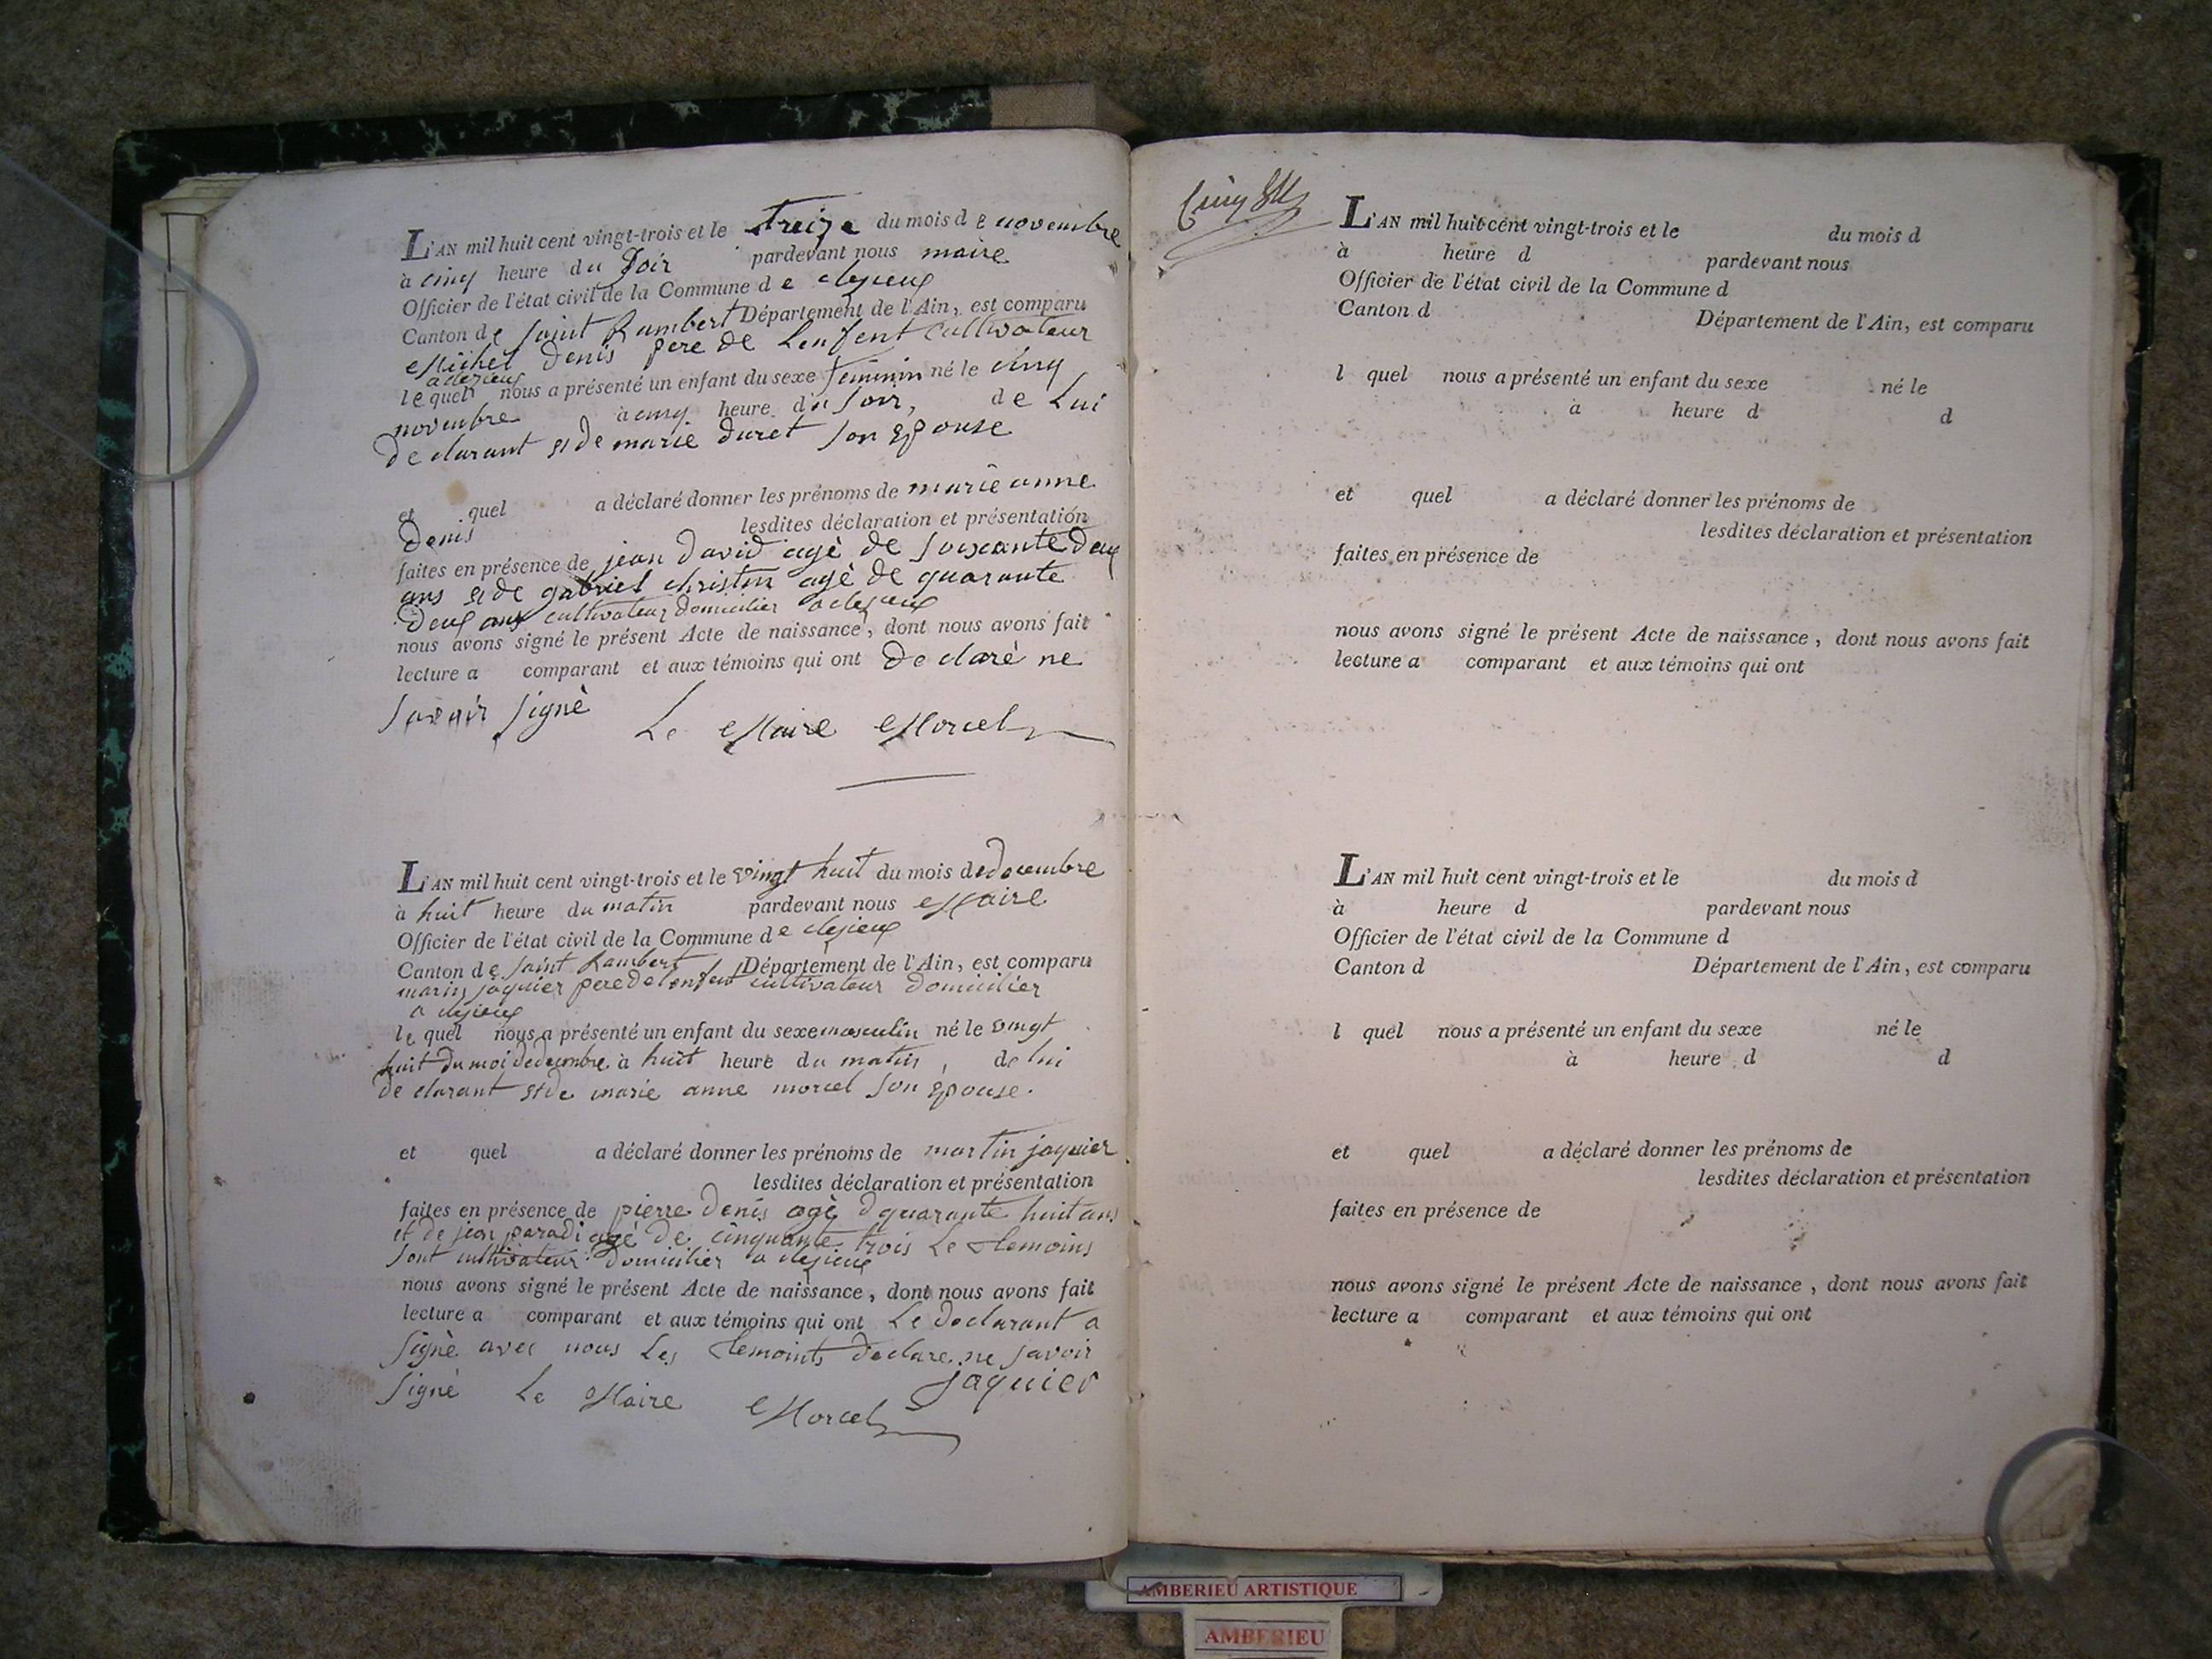 L'AN mil huit cent vingt-trois et le treize du mois de novembre
à cinq heure du Soir pardevant nous maire
Officier de l'état civil de la Commune de clezieux
Canton de saint Rambert Département de l'Ain, est comparu
Michel Denis pere de Lenfent Cultivateur
a clezieux
le quel nous a présenté un enfant du sexe feminin né le cinq
novembre à cinq heure du soir, de Lui
declarant et de marie duret son epouse
et quel a déclaré donner les prénoms de marie anne
Denis lesdites déclaration et présentation
faites en présence de jean David agè de soixante deux
ans et de gabriel christin agè de quarante
Deux ans cultivateur domicilier a clezieux
nous avons signé le présent Acte de naissance, dont nous avons fait
lecture a comparant et aux témoins qui ont declarè ne
savoir signè Le Maire Morcel
L'AN mil huit cent vingt-trois et le vingt huit du mois de decembre
à huit heure du matin pardevant nous Maire
Officier de l'état civil de la Commune de clezieux
Canton de saint Rambert Département de l'Ain, est comparu
marin jaquier pere de lenfent cultivateur Domicilier
a clezieux
le quel nous a présenté un enfant du sexe masculin né le vingt
huit du moi de decembre à huit heure du matin, de lui
declarant et de marie anne morcel son epouse.
et quel a déclaré donner les prénoms de martin jaquier
lesdites déclaration et présentation
faites en présence de pierre Denis agè d quarante huit ans
et de jean paradi agé de cinquante trois Le temoins
sont cultivateur domicilier a clezieux
nous avons signé le présent Acte de naissance, dont nous avons fait
lecture a comparant et aux témoins qui ont Le declarant a
signè avec nous Les temoints declare ne savoir
signé Le Maire Morcel jaquier
L'AN mil huit cent vingt-trois et le du mois d
à heure d pardevant nous
Officier de l'état civil de la Commune d
Canton d Département de l'Ain, est comparu
l quel nous a présenté un enfant du sexe né le
à heure d d
et quel a déclaré donner les prénoms de
lesdites déclaration et présentation
faites en présence de
nous avons signé le présent Acte de naissance, dont nous avons fait
lecture a comparant et aux témoins qui ont
L'AN mil huit cent vingt-trois et le du mois d
à heure d pardevant nous
Officier de l'état civil de la Commune d
Canton d Département de l'Ain, est comparu
l quel nous a présenté un enfant du sexe né le
à heure d d
et quel a déclaré donner les prénoms de
lesdites déclaration et présentation
faites en présence de
nous avons signé le présent Acte de naissance, dont nous avons fait
lecture a comparant et aux témoins qui ont
AMBERIEU ARTISTIQUE
AMBERIEU